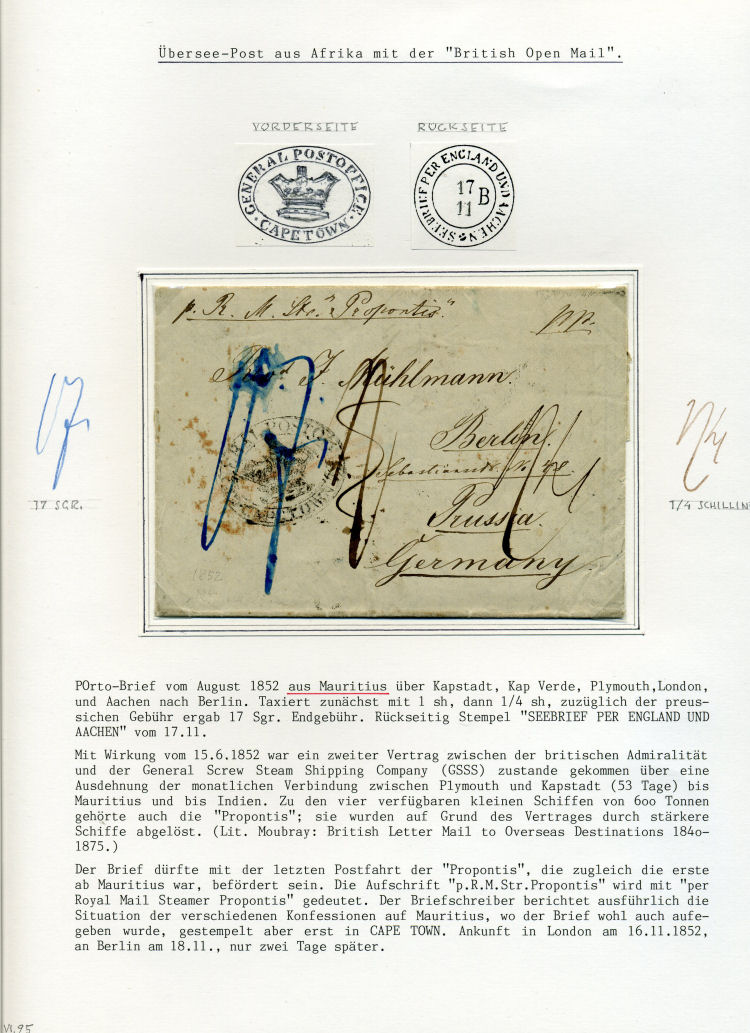 Übersee-Post aus Afrika mit der "British Open Mail".
VORDERSEITE
RÜCKSEITE
GENERAL POSTOFFICE
CAPETOWN
SEEBRIEF PER ENGLAND UND AACHEN
17
11
B
p. R. M. Str. "Propontis"
J. Mühlmann.
Berlin.
Prussia.
Germany.
GENERAL POSTOFFICE
CAPETOWN
1852
17
17 SGR.
1/4
1/4 SCHILLIN
POrto-Brief vom August 1852 aus Mauritius über Kapstadt, Kap Verde, Plymouth,London,
und Aachen nach Berlin. Taxiert zunächst mit 1 sh, dann 1/4 sh, zuzüglich der preus-
sichen Gebühr ergab 17 Sgr. Endgebühr. Rückseitig Stempel "SEEBRIEF PER ENGLAND UND
AACHEN" vom 17.11.
Mit Wirkung vom 15.6.1852 war ein zweiter Vertrag zwischen der britischen Admiralität
und der General Screw Steam Shipping Company (GSSS) zustande gekommen über eine
Ausdehnung der monatlichen Verbindung zwischen Plymouth und Kapstadt (53 Tage) bis
Mauritius und bis Indien. Zu den vier verfügbaren kleinen Schiffen von 6oo Tonnen
gehörte auch die "Propontis"; sie wurden auf Grund des Vertrages durch stärkere
Schiffe abgelöst. (Lit. Moubray: British Letter Mail to Overseas Destinations 184o-
1875.)
Der Brief dürfte mit der letzten Postfahrt der "Propontis", die zugleich die erste
ab Mauritius war, befördert sein. Die Aufschrift "p.R.M.Str.Propontis" wird mit "per
Royal Mail Steamer Propontis" gedeutet. Der Briefschreiber berichtet ausführlich die
Situation der verschiedenen Konfessionen auf Mauritius, wo der Brief wohl auch aufe-
geben wurde, gestempelt aber erst in CAPE TOWN. Ankunft in London am 16.11.1852,
an Berlin am 18.11., nur zwei Tage später.
VI.95